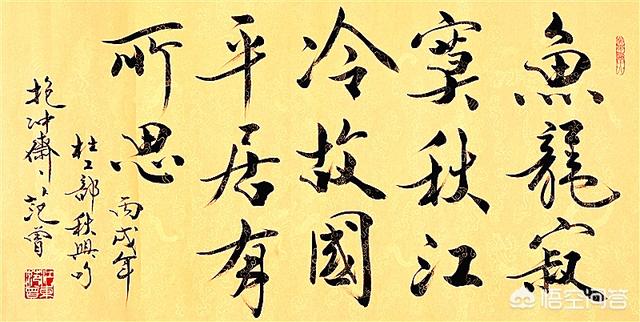 魚龍寂
寞秋江
冷故國
平居有
所思
丙戌年
杜工部秋興句
抱冲齋 范曾
悟空问答